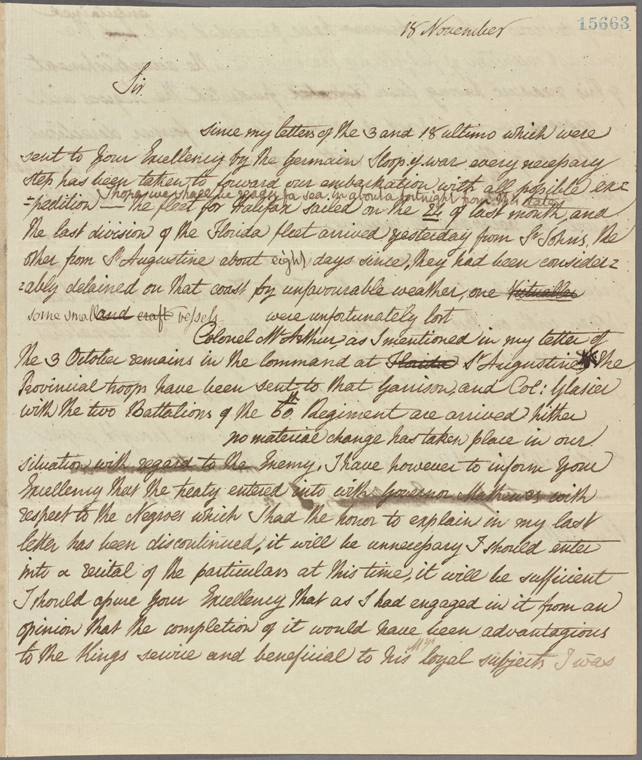 15663
18 November
Sir
since my letters of the 3 and 18 ultimo which were
sent to Your Excellency by the Germain Sloop of war every necessary
step has been taken to forward our embarkation with all possible ex=
I hope we shall be ready for sea in about a fortnight from this date
=pedition — the fleet for Halifax sailed on the 24 of last month, and
the last division of the Florida fleet arrived yesterday from St Johns, the
other from St Augustine about eight days since, they had been consider=
=ably detained on that coast by unfavourable weather, one Victualler
some small and craft vessels were unfortunately lost
Colonel McArthur as I mentioned in my letter of
the 3 October remains in the command at Florida St Augustine the
Provincial troops have been sent to that Garrison, and Col: Glasier
with the two Battalions of the 60th Regiment are arrived hither
no material change has taken place in our
situation with regard to the Enemy. I have however to inform Your
Excellency that the treaty entered into with Governor Mathewes with
respect to the Negroes which I had the honor to explain in my last
letter has been discontinued, it will be unnecessary I should enter
into a recital of the particulars at this time, it will be sufficient
I should assure Your Excellency that as I had engaged in it from an
opinion that the completion of it would have been advantagious
to the Kings service and beneficial to his loyal subjects I was